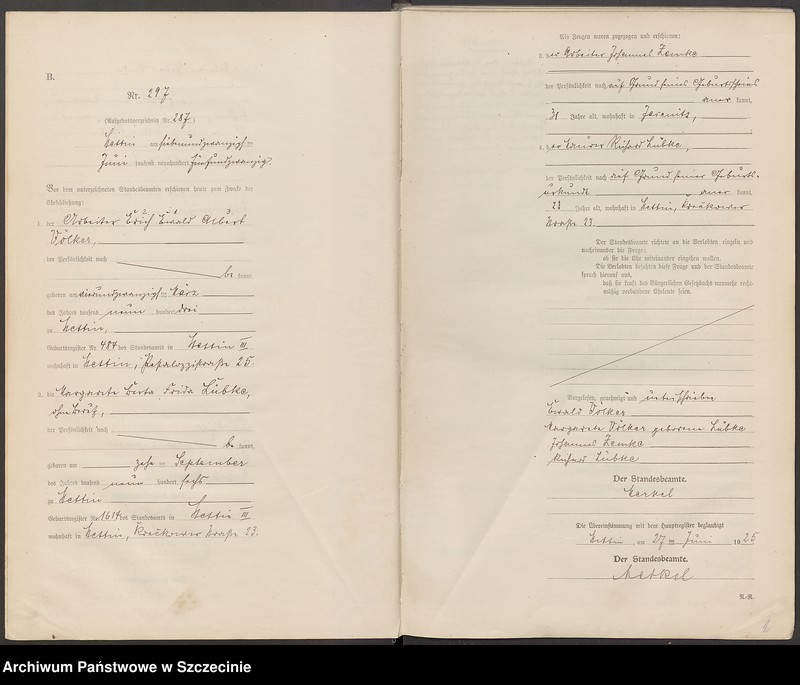 B.
Nr. 297.
(Aufgebotsverzeichnis Nr. 287)
Stettin am siebenundzwanzigsten
Juni tausend neunhundert fünfundzwanzig.
Vor dem unterzeichneten Standesbeamten erschienen heute zum Zwecke der
Eheschließung:
1. der Arbeiter Erich Ewald Albert
Völker,
der Persönlichkeit nach
be kannt,
geboren am vierundzwanzigsten März
des Jahres tausend neun hundert drei
zu Stettin,
Geburtsregister Nr. 484 des Standesamts in Stettin III
wohnhaft in Stettin, Pestalozzistraße 25.
2. die Margarete Berta Frida Lübke,
ohne Beruf,
der Persönlichkeit nach
be kannt,
geboren am zehnten September
des Jahres tausend neun hundert sechs
zu Stettin
Geburtsregister Nr. 1614 des Standesamts in Stettin III
wohnhaft in Stettin, Kreckower Straße 23.
Als Zeugen waren zugezogen und erschienen:
3. der Arbeiter Johannes Zemke
der Persönlichkeit nach auf Grund seines Geburtsscheins
aner kannt,
31 Jahre alt, wohnhaft in Jasenitz,
4. der Richard Lübke,
der Persönlichkeit nach auf Grund seiner Geburts-
urkunde aner kannt,
23 Jahre alt, wohnhaft in Stettin, Kreckower
Straße 23.
Der Standesbeamte richtete an die Verlobten einzeln und
nacheinander die Frage:
ob sie die Ehe miteinander eingehen wollen.
Die Verlobten bejahten diese Frage und der Standesbeamte
sprach hierauf aus,
daß sie kraft des Bürgerlichen Gesetzbuchs nunmehr recht-
mäßig verbundene Eheleute seien.
Vorgelesen, genehmigt und unterschrieben
Ewald Völker
Margarete Völker geborene Lübke
Johannes Zemke
Richard Lübke
Der Standesbeamte.
Merkel
Die Übereinstimmung mit dem Hauptregister beglaubigt
Stettin am 27 ten Juni 1925
Der Standesbeamte.
Merkel
R.-R.
Archiwum Państwowe w Szczecinie